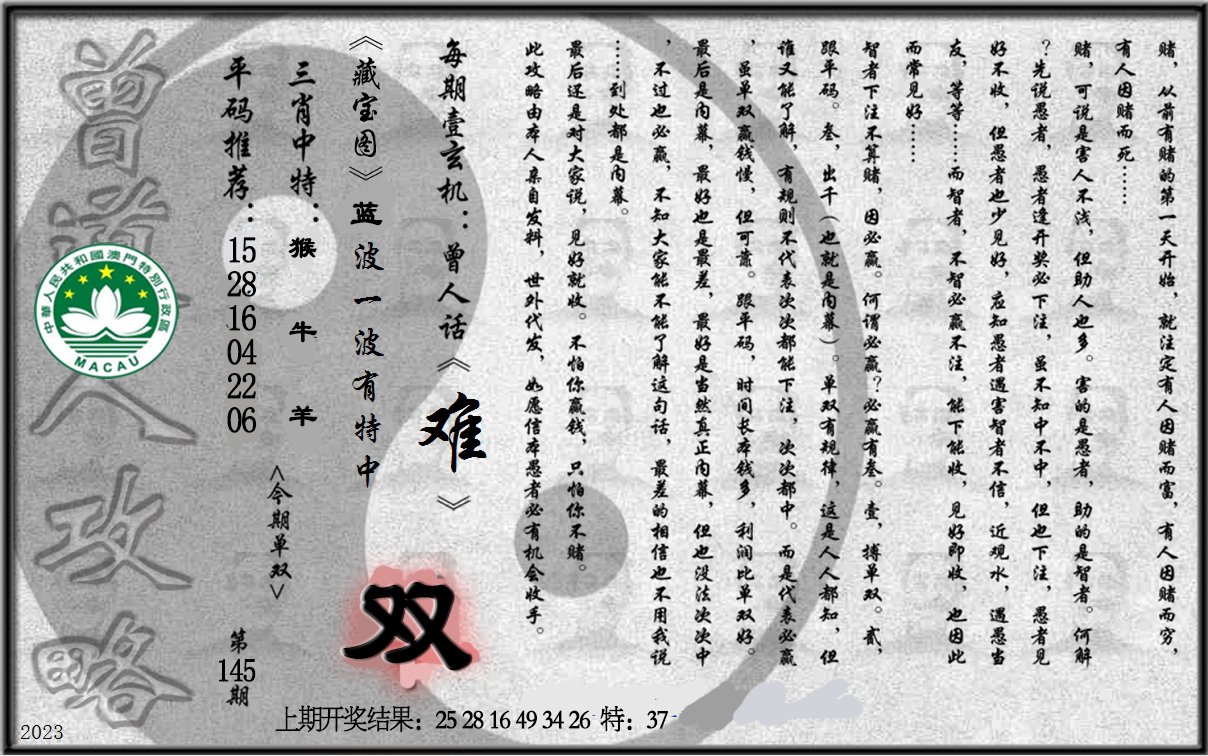 赌，从前有赌的第一天开始，就注定有人因赌而富，有人因赌而穷，
有人因赌而死……
赌，可说是害人不浅，但助人也多。害的是愚者，助的是智者。何解
？先说愚者，愚者逢开奖必下注，虽不知中不中，但也下注，愚者见
好不收，但愚者也少见好，应知愚者遇害智者不信，近观水，遇愚当
友，等等……而智者，不智必赢不注，能下能收，见好即收，也因此
而常见好……
智者下注不算赌，因必赢。何谓必赢？必赢有叁。壹，搏单双。贰，
跟平码。叁，出千（也就是内幕）。单双有规律，这是人人都知，但
谁又能了解，有规则不代表次次都能下注，次次都中。而是代表必赢
，虽单双赢钱慢，但可靠。跟平码，时间长本钱多，利润比单双好。
最后是内幕，最好也是最差，最好是当然真正内幕，但也没法次次中
，不过也必赢，不知大家能不能了解这句话，最差的相信也不用我说
……到处都是内幕。
最后还是对大家说，见好就收。不怕你赢钱，只怕你不赌。
此攻略由本人亲自发料，世外代发，如愿信本愚者必有机会收手。
每期壹玄机：曾人话《难》
《藏宝图》蓝波一波有特中
双
三肖中特：猴 牛 羊
<今期单双>
平码推荐：15 28 16 04 22 06
第145期
曾道人攻略
中華人民共和國澳門特別行政區
MACAU
上期开奖结果：25 28 16 49 34 26 特：37
2023